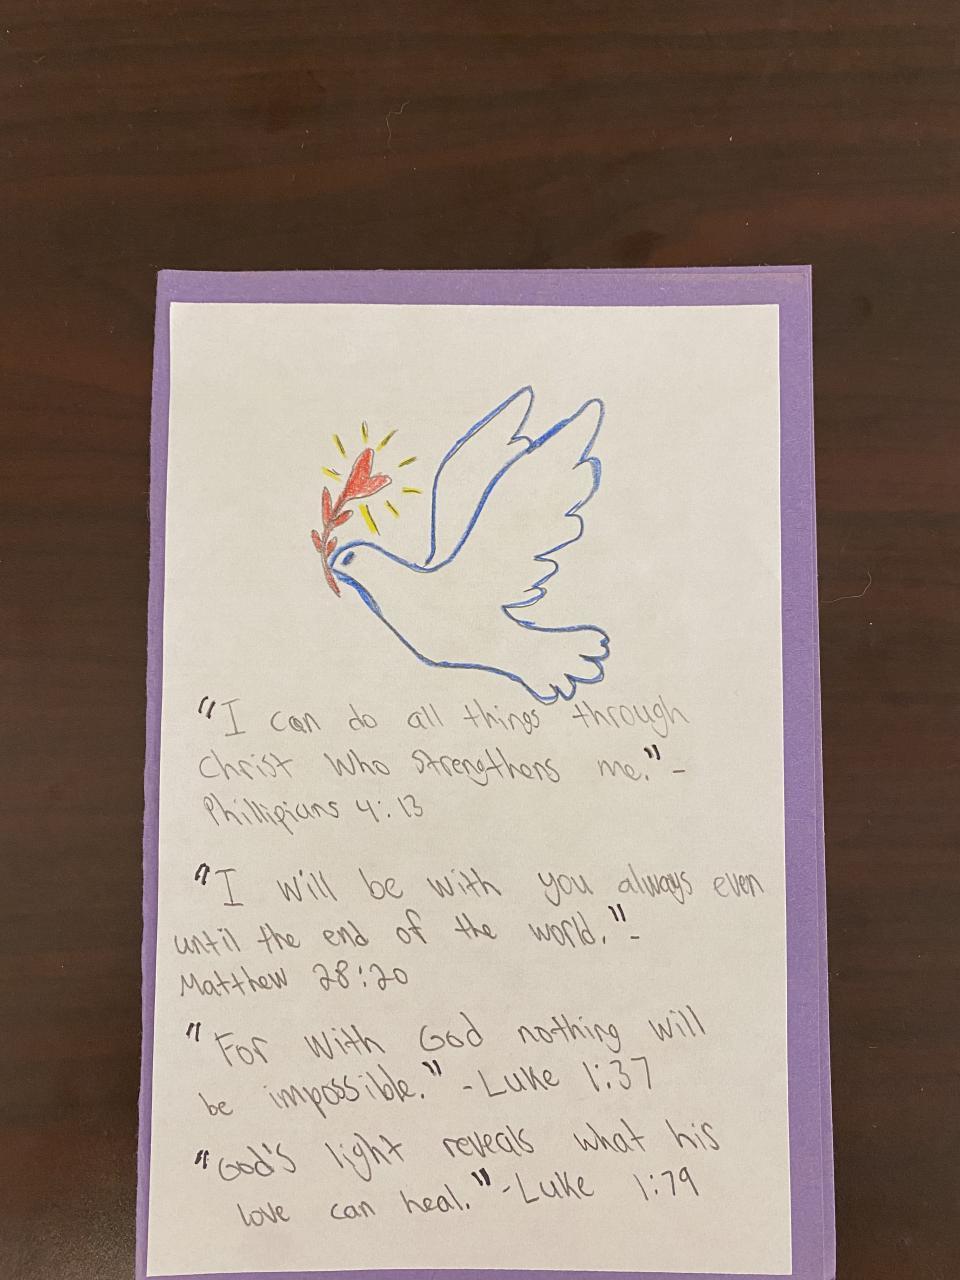 "I can do all things through
Christ who strengthens me." -
Phillipians 4:13
"I will be with you always even
until the end of the world." -
Matthew 28:20
"For with God nothing will
be impossible." - Luke 1:37
"God's light reveals what his
love can heal." - Luke 1:79